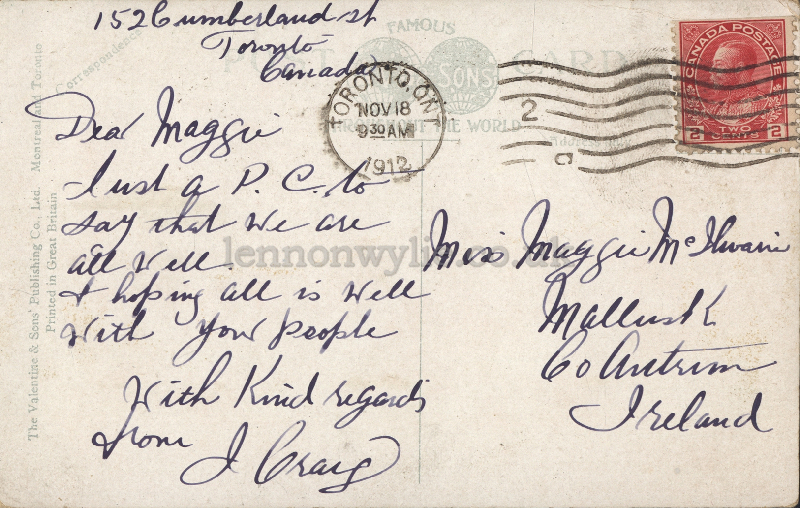 152 Cumberland st
Toronto
Canada
FAMOUS
POST CARD
SONS
THROUGHOUT THE WORLD
Correspondence
TORONTO, ONT
NOV 18
9 30 AM
1912
2
CANADA POSTAGE
2 TWO CENTS 2
Dear Maggie
Just a P. C. to
say that we are
all well.
& hoping all is well
with your people
With Kind regards
from
J Craig
Miss Maggie McIlwain
Mallusk
Co Antrim
Ireland
The Valentine & Sons' Publishing Co., Ltd. Montreal and Toronto
Printed in Great Britain
lennonwylie.co.uk